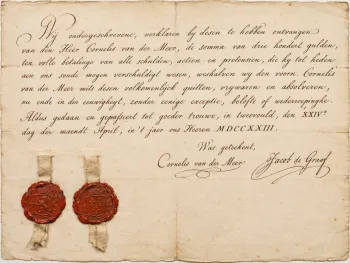 Wij ondergeschrevene, verklaren bij desen te hebben ontvangen
van den Heer Cornelis van der Meer, de somma van drie hondert gulden,
ten volle betalinge van alle schulden, actien en pretentien, die hij tot heden
aen ons soude mogen verschuldigt wesen, weshalven wij den voorn. Cornelis
van der Meer mits desen volkomentlijck quitten, vrijwaren en absolveren,
nu ende in der eeuwigheijt, zonder eenige exceptie, belofte of wederroepinghe.
Aldus gedaan en gepasseert tot goeder trouwe, in tweevould, den XXIVe.
dag der maendt April, in 't jaer ons Heeren MDCCXXIII.
Was getekent,
Cornelis van der Meer Jacob de Graaf